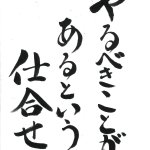 やるべきことが
あるという
仕合せ